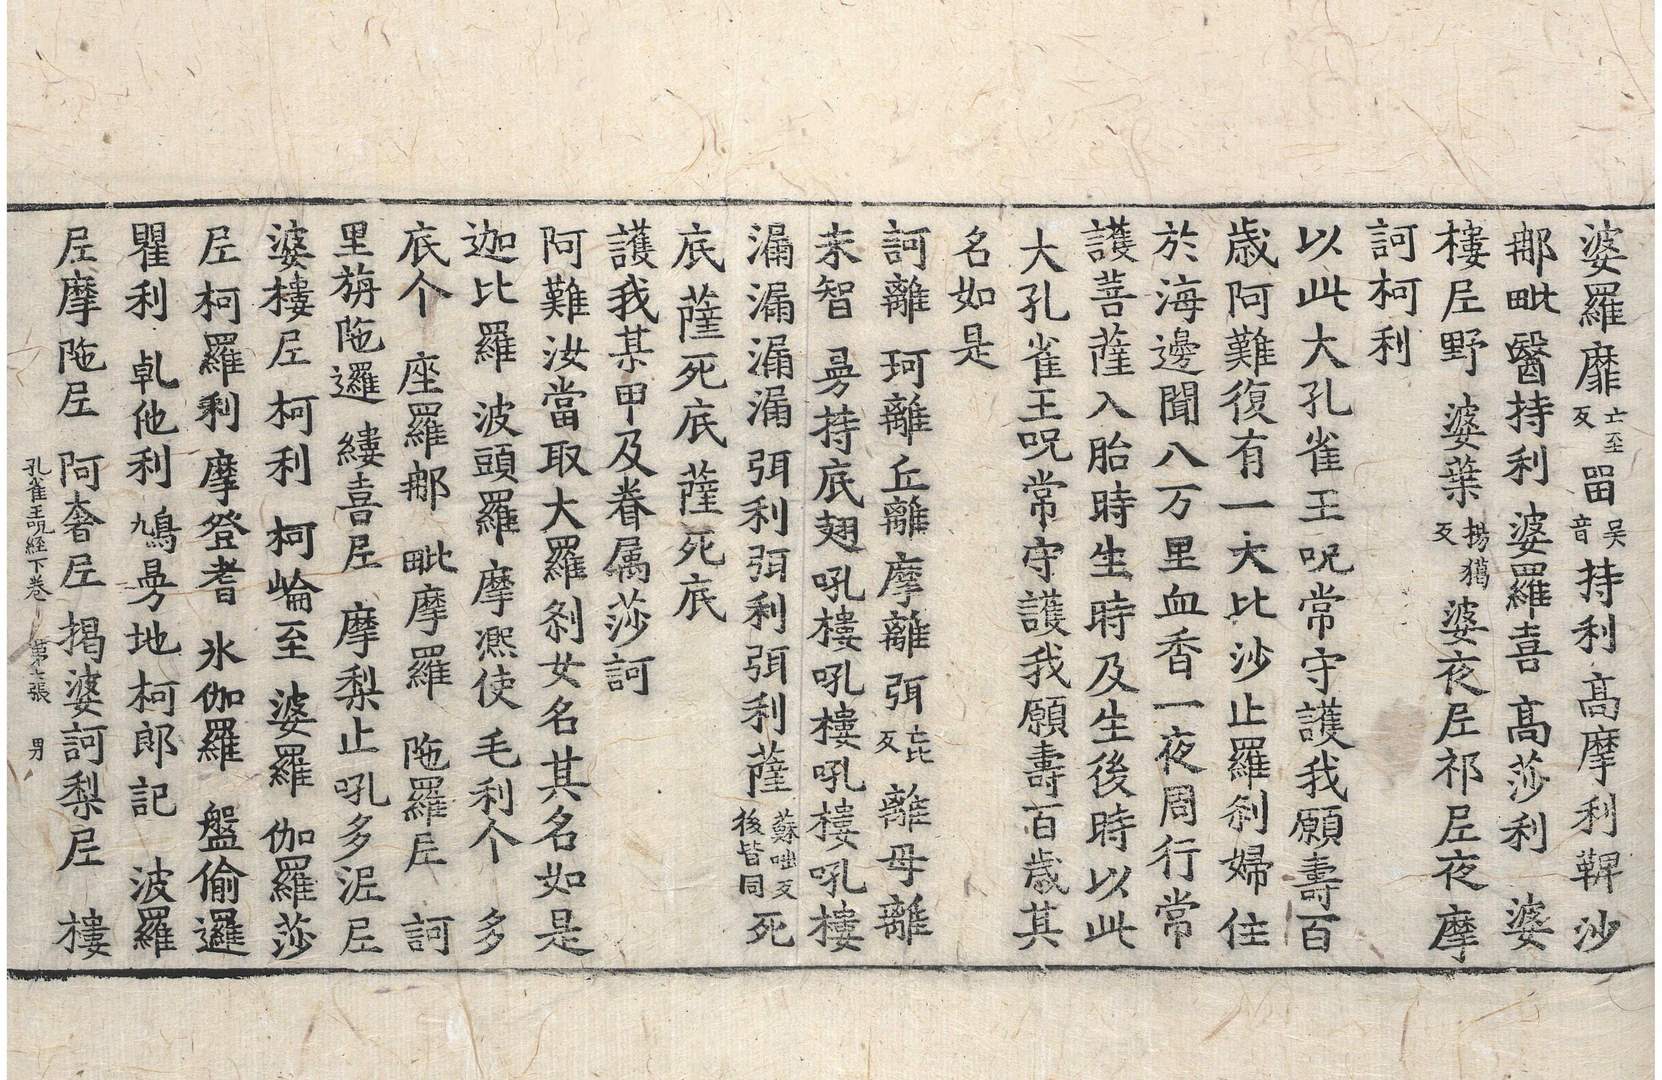 婆羅靡亡至反留吴音持利高摩利鞞沙
那毗醫持利 婆羅喜 高莎利 婆
樓𡰱野 婆葉揚獦反婆夜𡰱祁𡰱夜摩
訶柯利
以此大孔雀王呪常守護我願壽百
歲阿難復有一大比沙止羅剎婦住
於海邊聞八万里血香一夜周行常
護菩薩入胎時生時及生後時以此
大孔雀王呪常守護我願壽百歲其
名如是
訶離 珂離丘離摩離弭亡比反離母離
末智 㝵持底翅吼樓吼樓吼樓吼樓
漏漏漏漏 弭利弭利弭利薩蘇咄反後皆同死
底 薩死底 薩死底
護我某甲及眷属莎訶
阿難汝當取大羅剎女名其名如是
迦比羅 波頭羅 摩凞使 毛利个 多
底个 座羅那 毗摩羅 陁羅𡰱 訶
里旃陁邏 縷喜𡰱 摩梨止吼多泥𡰱
婆樓𡰱 柯利 柯崘至 婆羅 伽羅莎
𡰱 柯羅利 摩登耆 氷伽羅 盤偷邏
瞿利 乹他利 鳩㝵地柯郎記 波羅
𡰱摩陁𡰱 阿奢𡰱 揭婆訶梨𡰱 樓
孔雀王呪経下卷 第七張 男